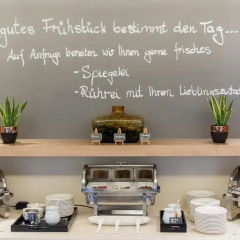 gutes Frühstück bestimmt den Tag...
Auf Anfrage bereiten wir Ihnen gerne frisches
- Spiegelei
- Rührei mit Ihren Lieblingszutaten